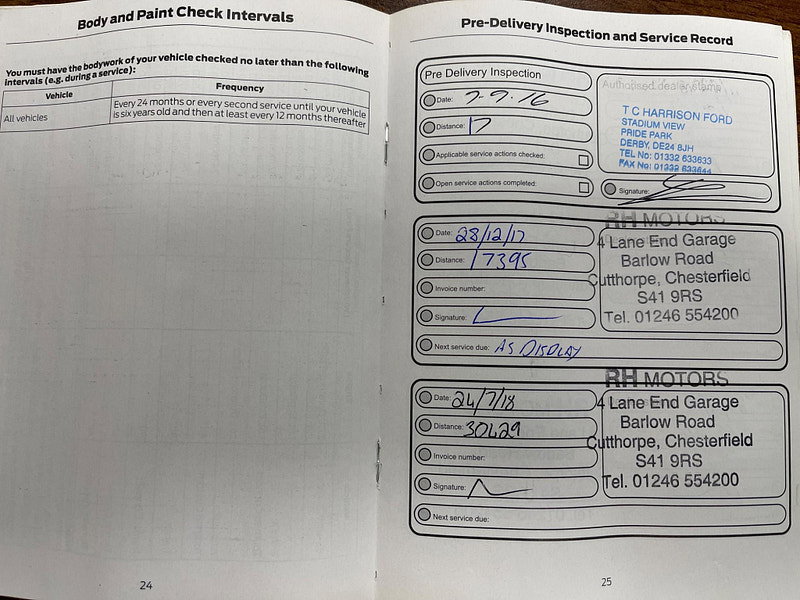 Body and Paint Check Intervals
You must have the bodywork of your vehicle checked no later than the following
intervals (e.g. during a service):
Vehicle
Frequency
All vehicles
Every 24 months or every second service until your vehicle
is six years old and then at least every 12 months thereafter
24
Pre-Delivery Inspection and Service Record
Pre Delivery Inspection
Date: 7-9-16
Distance: 17
Applicable service actions checked:
Open service actions completed:
Authorised dealer stamp
T C HARRISON FORD
STADIUM VIEW
PRIDE PARK
DERBY, DE24 8JH
TEL No: 01332 633633
FAX No: 01332 633644
Signature:
Date: 28/12/17
Distance: 17395
Invoice number:
Signature:
Next service due: AS DISPLAY
RH MOTORS
4 Lane End Garage
Barlow Road
Cutthorpe, Chesterfield
S41 9RS
Tel. 01246 554200
Date: 24/7/18
Distance: 30429
Invoice number:
Signature:
Next service due:
RH MOTORS
4 Lane End Garage
Barlow Road
Cutthorpe, Chesterfield
S41 9RS
Tel. 01246 554200
25